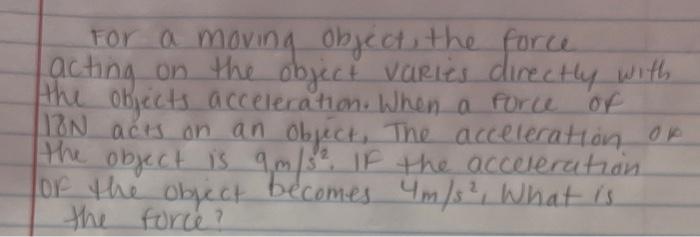 For a moving object, the force
acting on the object varies directly with
the objects acceleration. When a force of
18N acts on an object, The acceleration of
the object is 9m/s². If the acceleration
of the object becomes 4m/s², What is
the force?